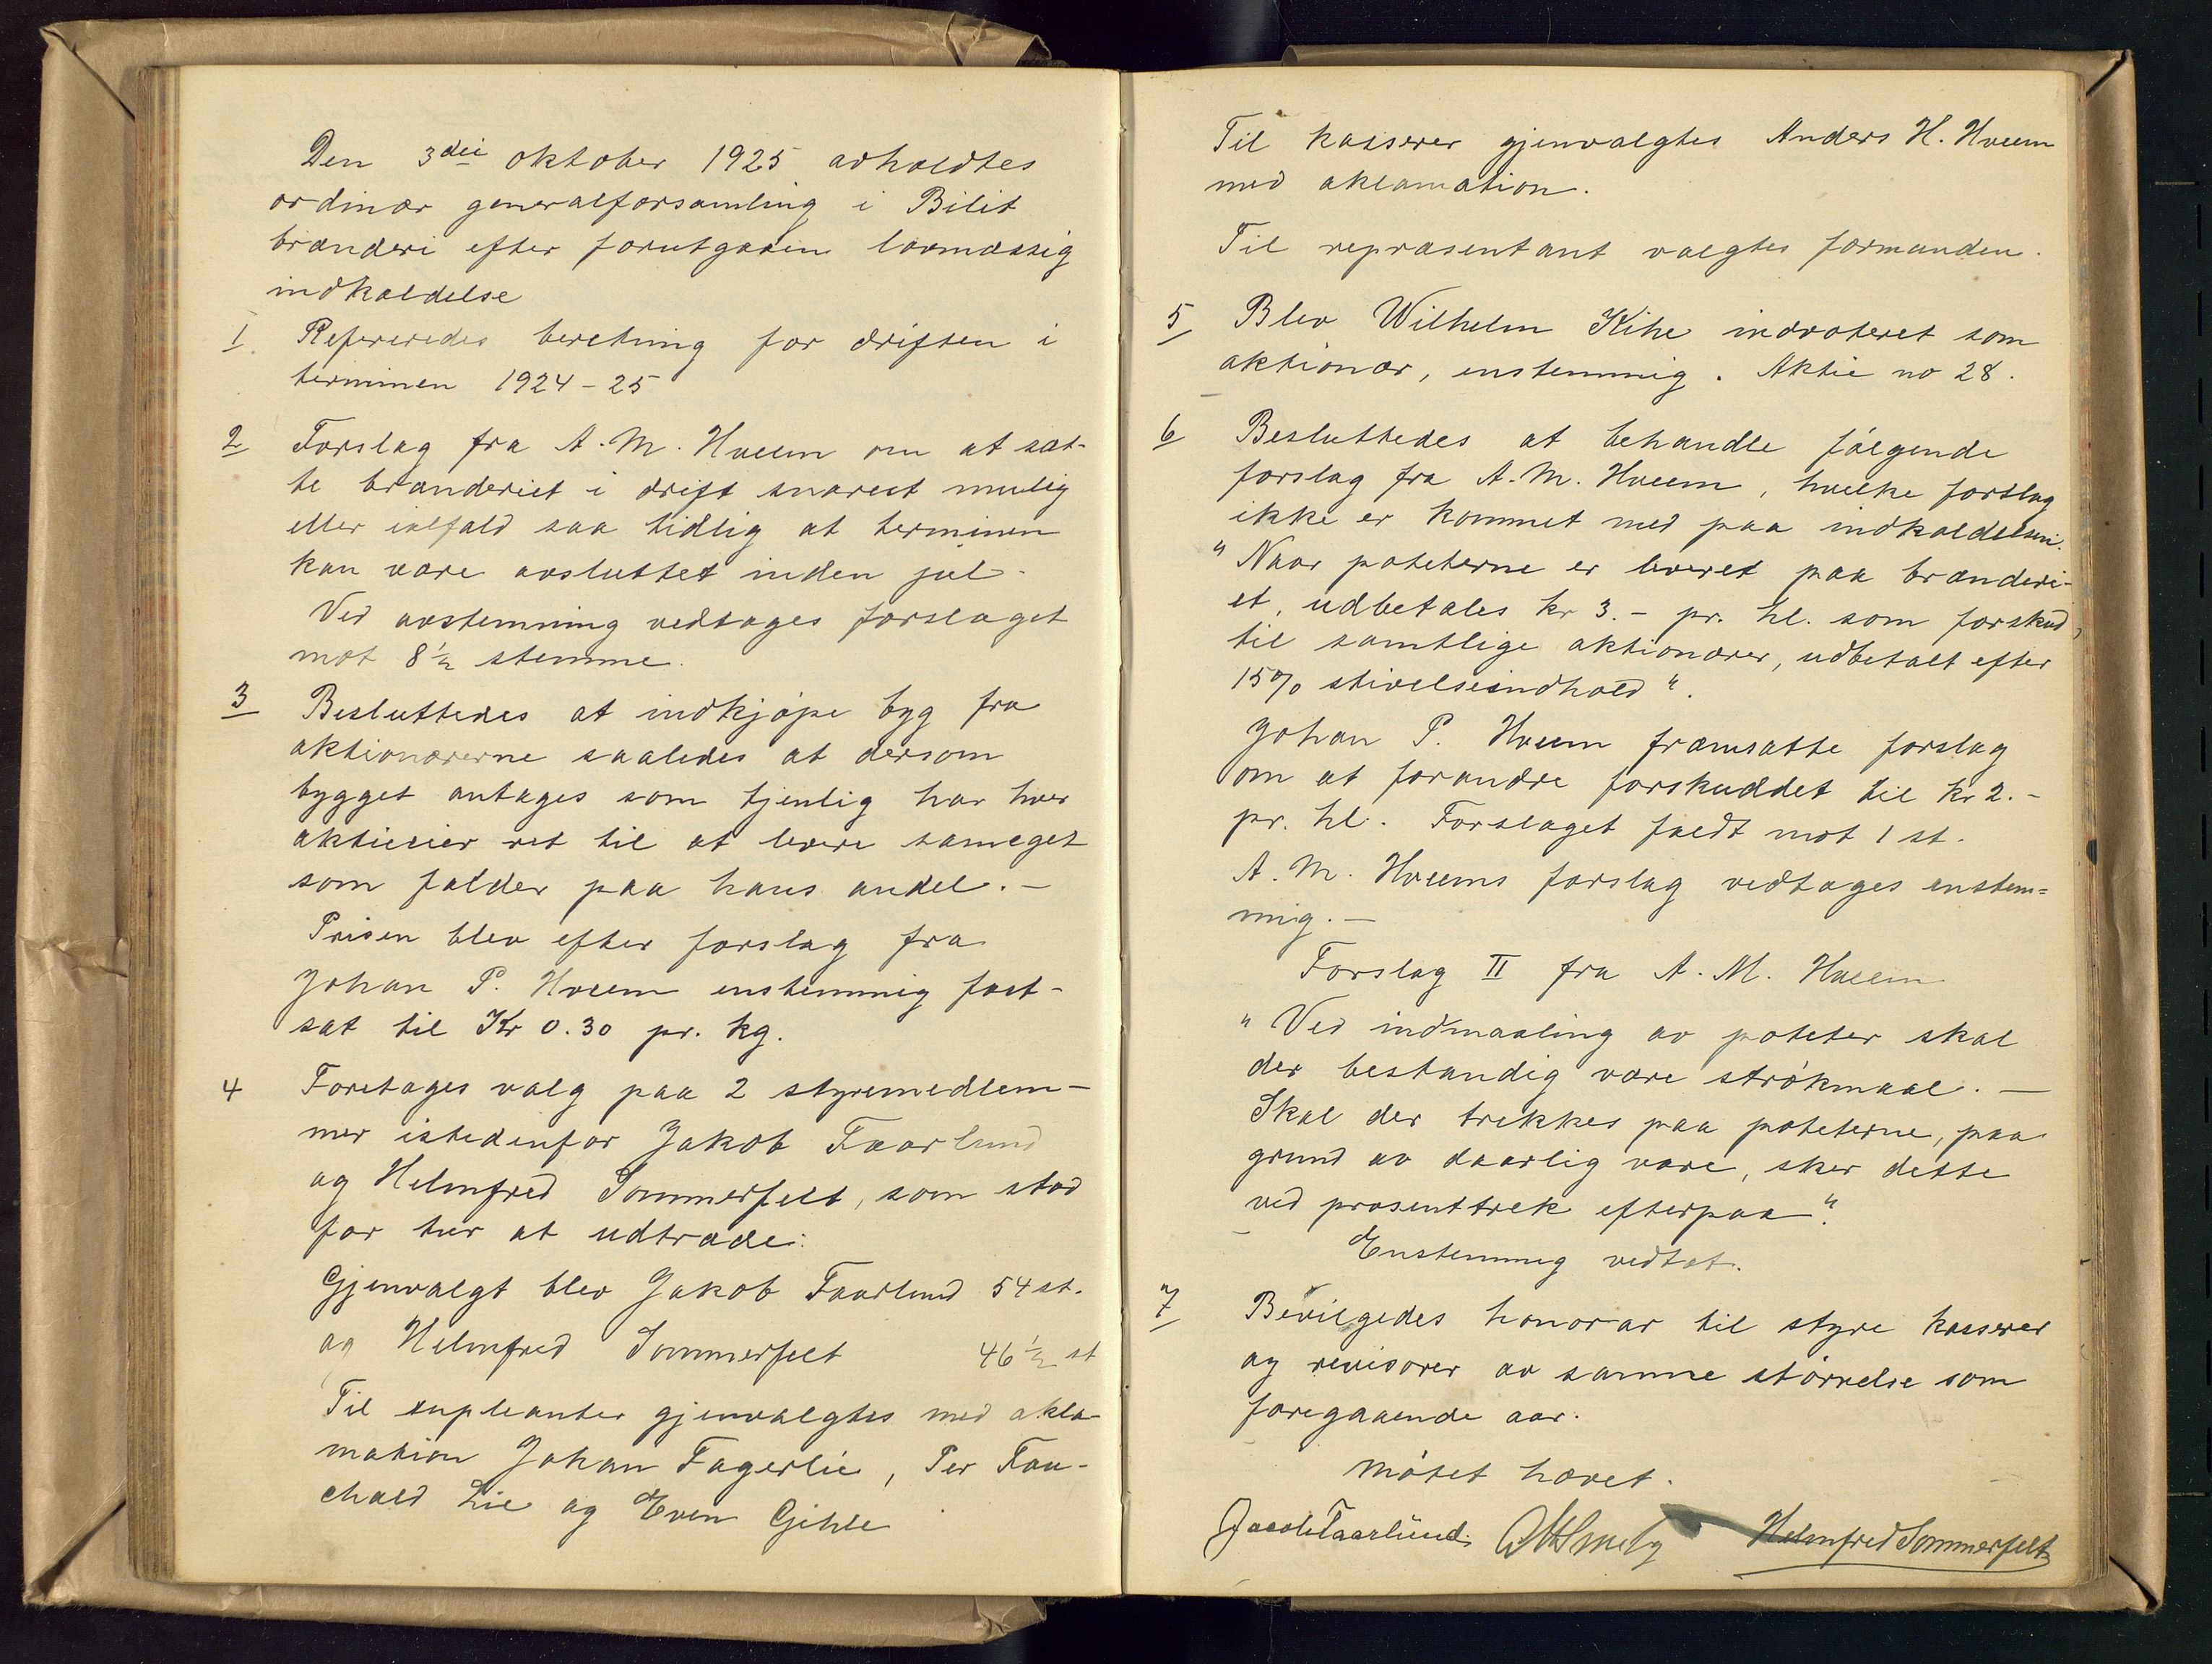 Den 3die oktober 1925 avholdtes
ordinær generalforsamling i Bilit
brænderi efter forutgaaen lovmæssig
indkaldelse
1. Refereredes beretning for driften i
terminen 1924-25
2 Forslag fra A. M. Hveem om at sæt-
te brænderiet i drift snarest mulig
eller ialfald saa tidlig at terminen
kan være avsluttet inden jul.
Ved avstemning vedtages forslaget
mot 8 1/2 stemme.
3 Besluttedes at indkjøpe byg fra
aktionærerne saaledes at dersom
bygget antages som tjenlig har hver
aktieeier ret til at levere sameget
som falder paa hans andel. —
Prisen blev efter forslag fra
Johan P. Hveem enstemmig fast-
sat til Kr 0.30 pr. kg.
4 Foretages valg paa 2 styremedlem-
mer istedenfor Jakob Faarlund
og Helmfred Sommerfelt, som stod
for tur at udtræde:
Gjenvalgt blev Jakob Faarlund 54 st.
og Helmfred Sommerfelt 46 1/2 st
Til supleanter gjenvalgtes med akla-
mation Johan Fagerlie, Per Fau-
chald Lie og Even Gihle
Til kasserer gjenvalgtes Anders H. Hveem
med aklamation.
Til repræsentant valgtes formanden.
5 Blev Wilhelm Kihe indvoteret som
aktionær, enstemmig. Aktie no 28.
6 Besluttedes at behandle følgende
forslag fra A. M. Hveem, hvilke forslag
ikke er kommet med paa indkaldelsen.
" Naar poteterne er leveret paa brænderi-
et, udbetales kr 3.- pr. hl. som forskud,
til samtlige aktionærer, udbetalt efter
15% stivelseindhold ".
Johan P. Hveem framsatte forslag
om at forandre forskuddet til kr 2.-
pr. hl. Forslaget faldt mot 1 st.
A. M. Hveems forslag vedtages enstem=
mig. —
Forslag II fra A. M. Hveem
" Ved indmaaling av poteter skal
der bestandig være strøkmaal. —
Skal der trekkes paa poteterne, paa
grund av daarlig vare, sker dette
ved prosenttrek efterpaa ".
Enstemmig vedtat.
7 Bevilgedes honorar til styre kasserer
og revisorer av samme størrelse som
foregaaende aar.
Møtet hævet.
Jacob Faarlund. Helmfred Sommerfelt